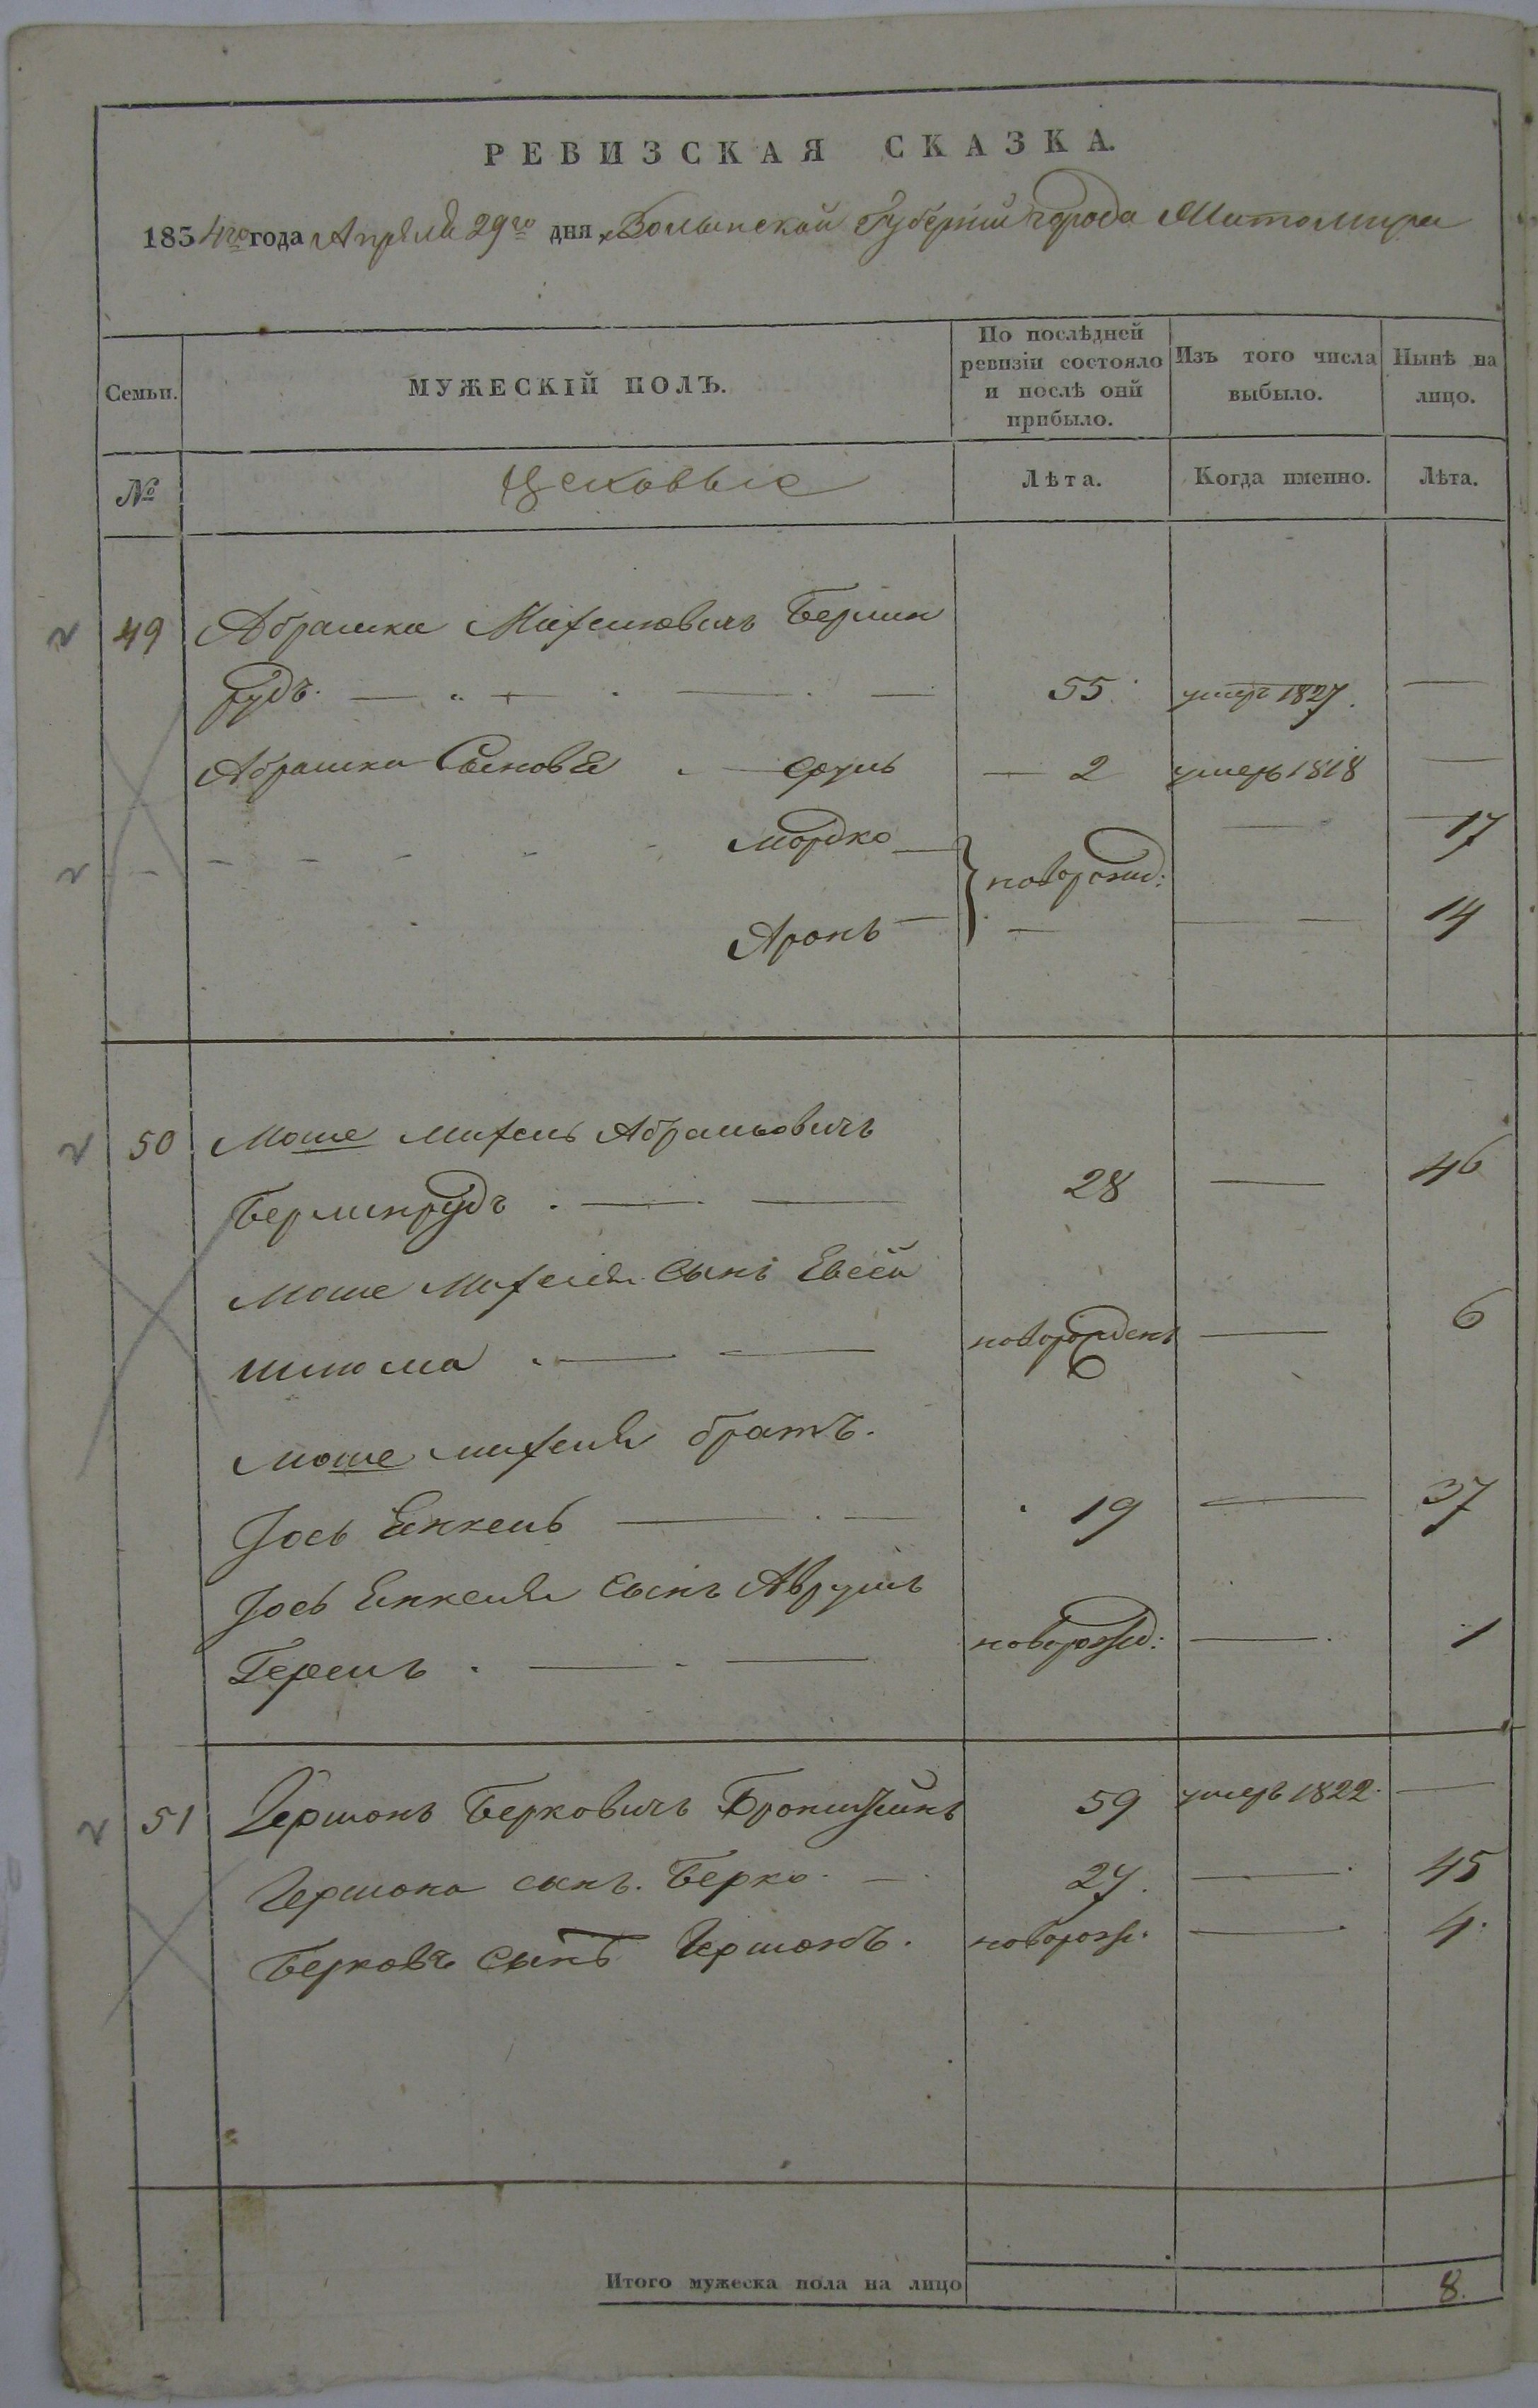 РЕВИЗСКАЯ СКАЗКА.
1834го года Апреля 29го дня Волынской Губернии города Житомира
Семьи.
МУЖЕСКІЙ ПОЛЪ.
По послѣдней ревизіи состояло и послѣ оной прибыло.
Изъ того числа выбыло.
Нынѣ на лицо.
№ Цеховые Лѣта. Когда именно. Лѣта.
49 Абрашка Михелювичъ Берлин
рудъ. — 55. умеръ 1827. —
Абрашка Сыновья — 2 умеръ 1818 —
Мордко — новорожд: — 17
Аронъ — — — 14
50 Моше Михель Абрамовичъ
Берлинрудъ . — 28 — 46
Моше Михеля Сынъ Евсей
Шлиома . — новорожденъ — 6
Моше Михеля братъ.
Іось Енкель — 19 — 37
Іось Енкеля Сынъ Аврумъ
Герсшъ . — новорожд: — 1
51 Гершонъ Берковичъ 59 умеръ 1822. —
Гершона сынъ. Берко. — 27. — 45
Берковъ Сынъ Гершонъ. новорож. — 4.
Итого мужеска пола на лицо 8.